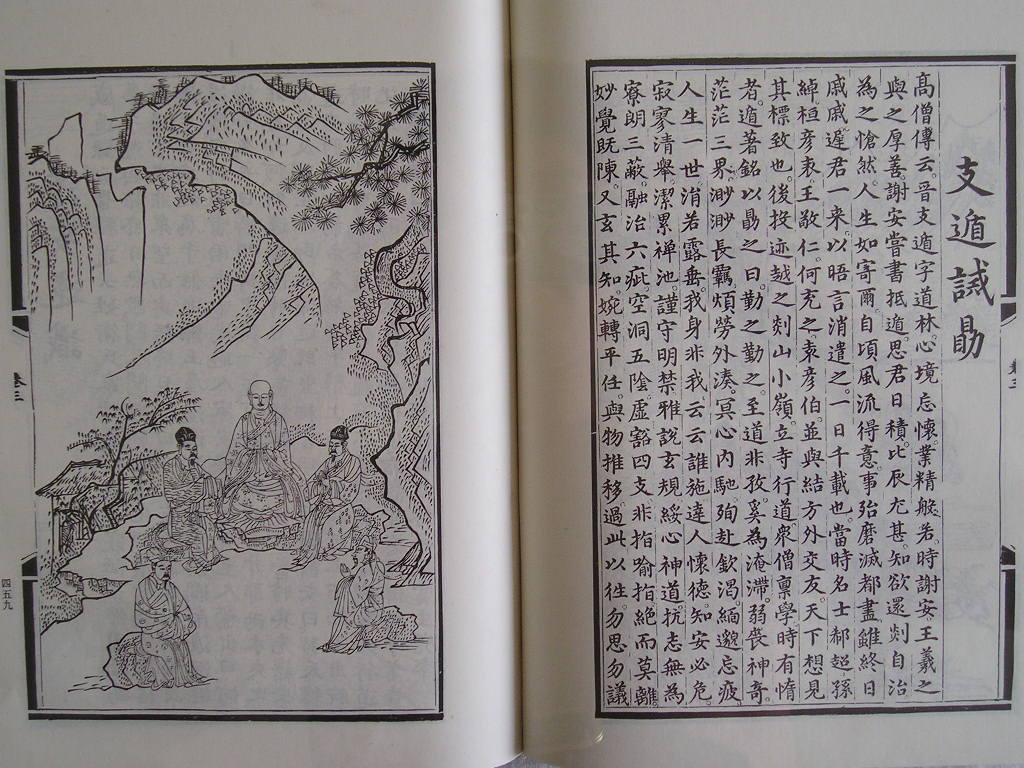 支遁誡勗
高僧傳云。晋支遁字道林。心境忘懷。業精般若。時謝安。王羲之
與之厚善。謝安嘗書抵遁。思君日積。比辰尤甚。知欲還剡自治
為之愴然。人生如寄爾。自頃風流得意事。殆磨滅都盡。雖終日
戚戚。遲君一来。以晤言消遣之。一日千載也。當時名士郗超。孫
綽。桓彦表。王敬仁。何充之。袁彦伯。並與結方外交友。天下想見
其標致也。後投迹越之剡山小嶺。立寺行道。衆僧稟學。時有惰
者。遁著銘以勗之曰。勤之勤之。至道非孜。奚為淹滯。弱喪神奇。
茫茫三界。渺渺長羈。煩勞外湊。冥心内馳。殉赴欽渴。緬邈忘疲。
人生一世。涓若露垂。我身非我。云云誰施。達人懷德。知安必危。
寂寥清舉。潔累禅池。謹守明禁。雅說玄規。綏心神道。抗志無為。
寮朗三蔽。融治六疵。空洞五陰。虚豁四支。非指喻指。絕而莫離。
妙覺既陳。又玄其知。婉轉平任。與物推移。過此以往。勿思勿議
卷三
卷三
四五九